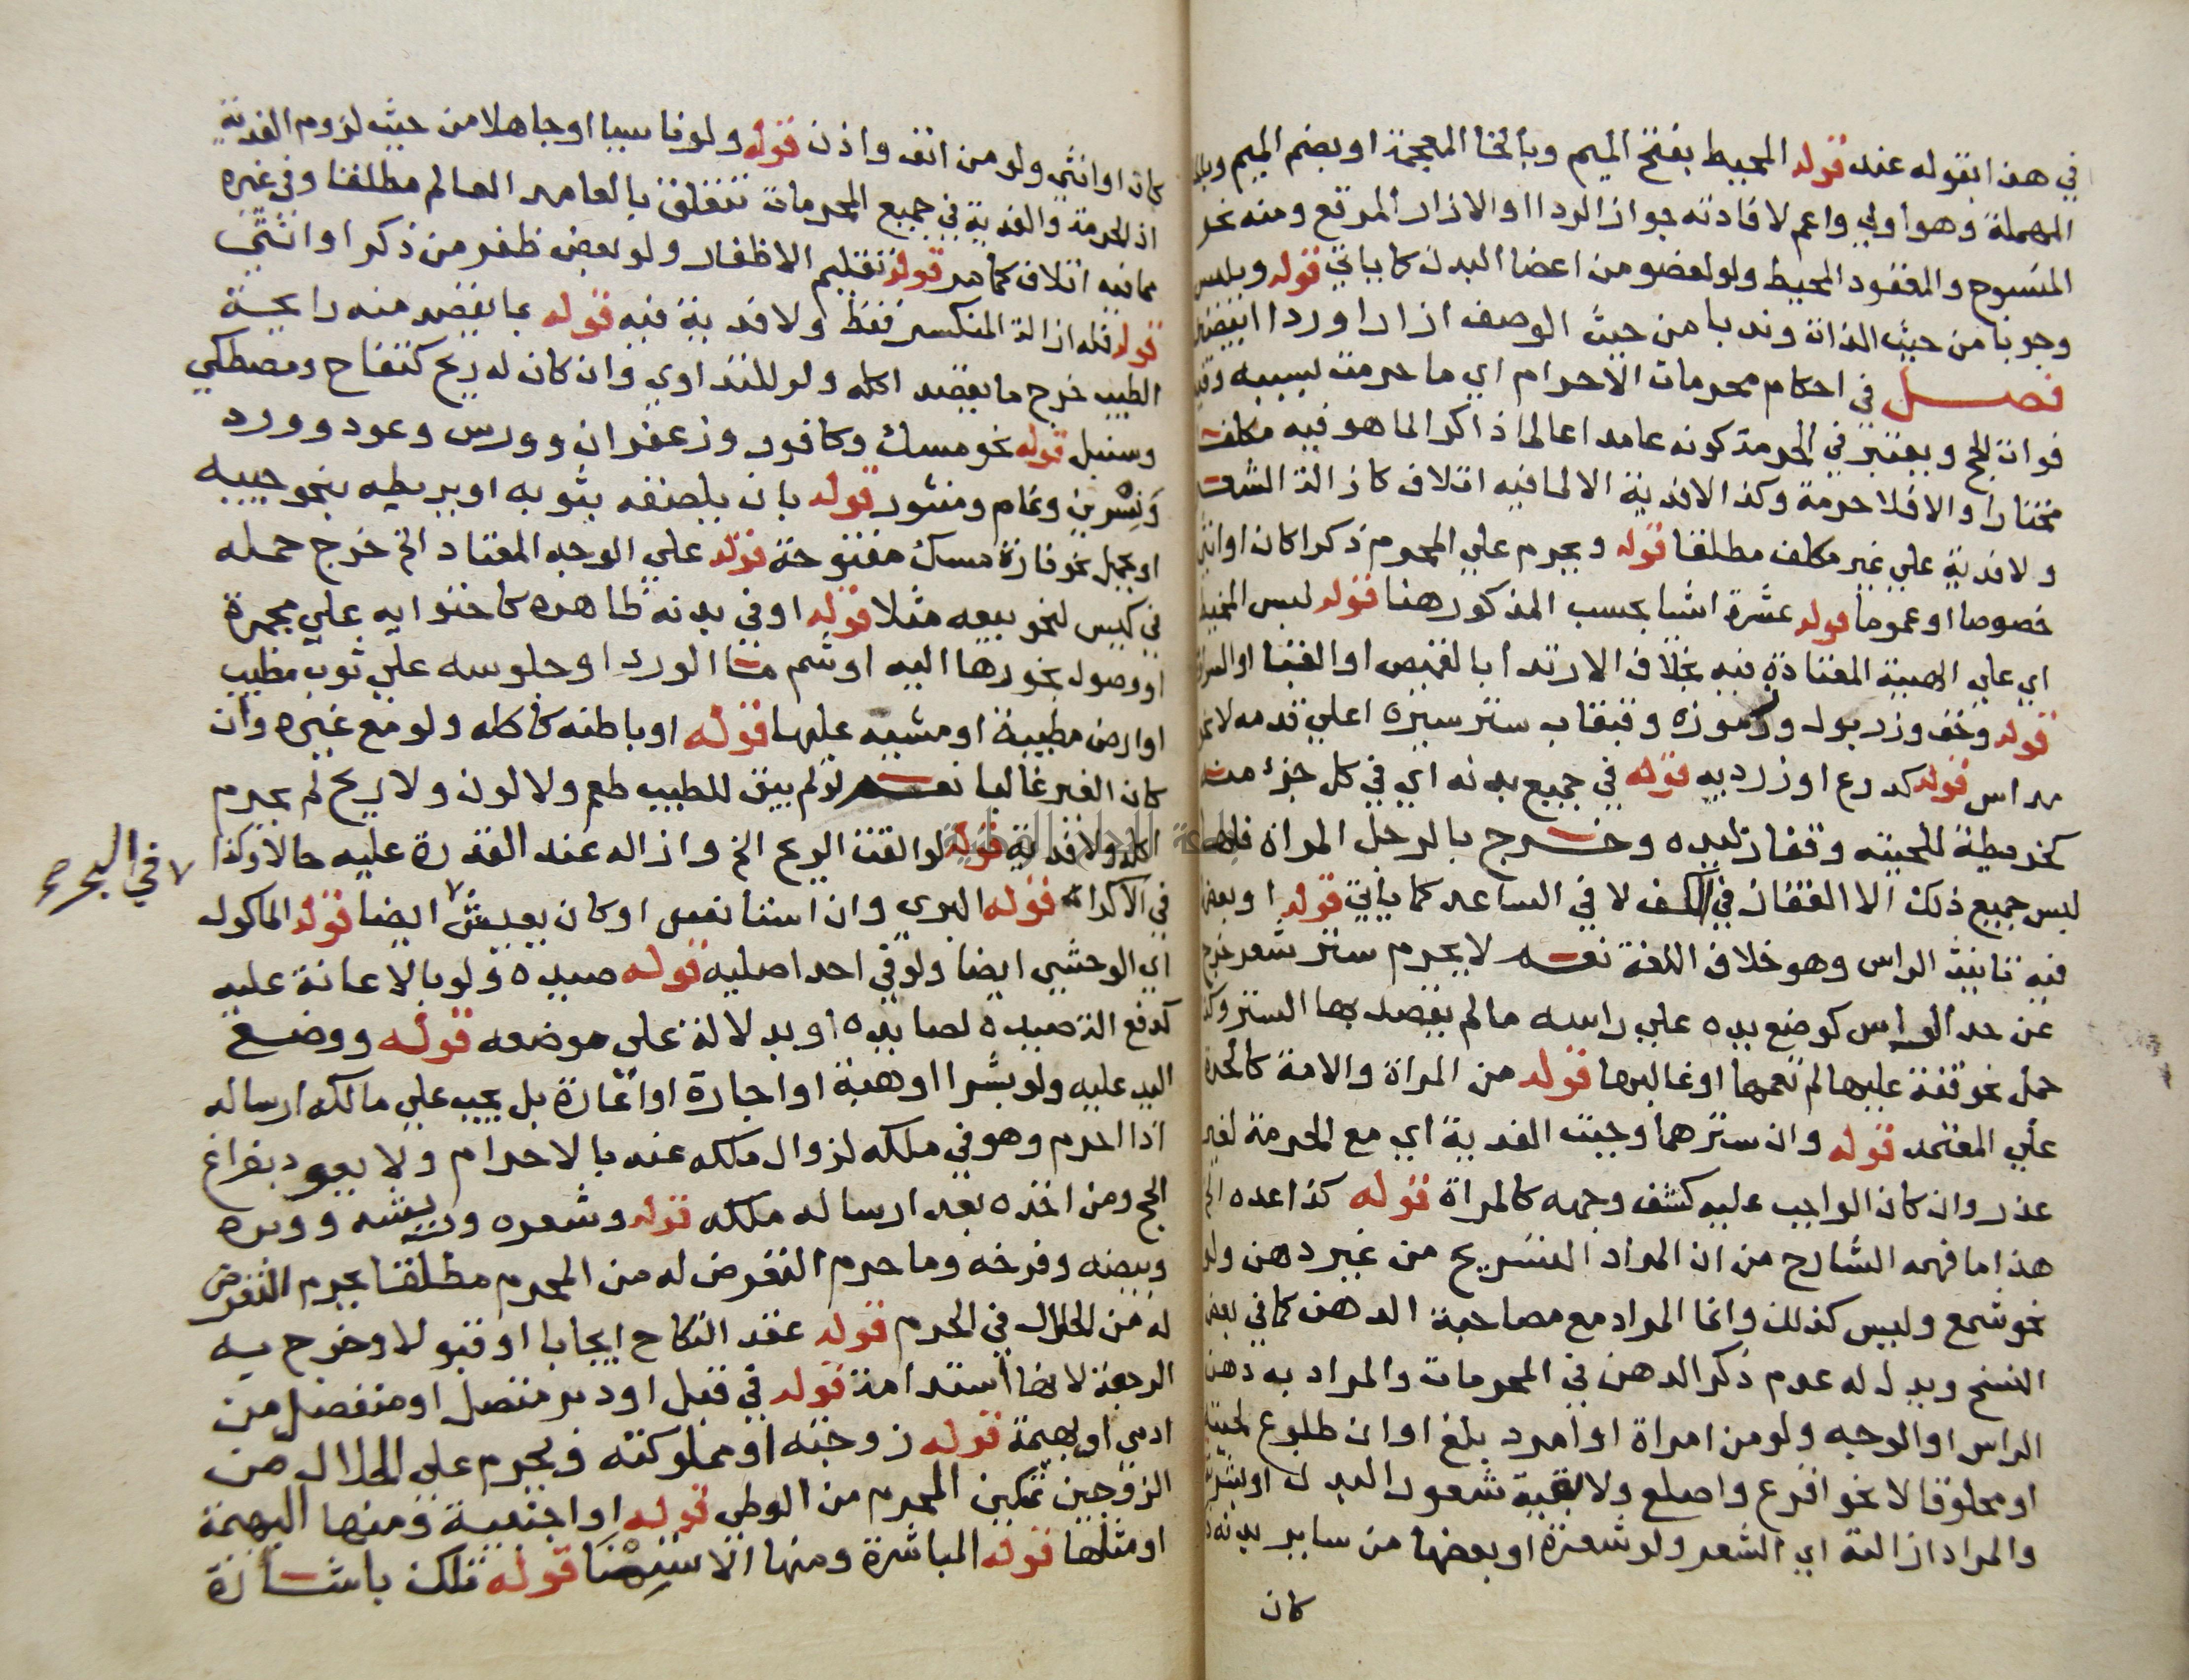 في هذا بقوله عند قوله المحيط بفتح الميم وبالخا المعجمة او بضم الميم
المهملة وهو أولي واعم لافادته جواز الردا او الازار المرقع ومنه نحو
المنسوج والمعقود المحيط ولو لعضو من اعضا البدن كما ياتي قوله ويلبس
وجوبا من حيث الذات وندبا من حيث الوصف ازارا وردا ابيضين
فصـــل في احكام محرمات الاحرام اي ما حرمت بسببه
فوات الحج ويعتبر في الحرمة كونه عامدا عالما ذاكرا لما هو فيه مكلف
مختارا والا فلا حرمة وكذا لا فدية الا لما فيه اتلاف كازالة الشعر
ولا فدية علي غير مكلف مطلقا قوله ويحرم علي المحرم ذكرا كان او انثي
خصوصا او عموما قوله عشرة اشيا بحسب المذكور هنا قوله لبس المخيط
اي علي الهيئة المعتادة فيه بخلاف الارتدا بالقميص او القبا او
قوله وخف وزربول ورموزه وقبقاب ستر سيره اعلي قدمه لا نحو
مداس قوله كدرع او زرديه قوله في جميع بدنه اي في كل جزء منه
كخريطة للحيته وقفاز ليده وخرج بالرجل المراة فلها
لبس جميع ذلك الا القفاز في الكف لا في الساعد كما ياتي قوله او بعض
فيه تانيث الراس وهو خلاف اللغة نعم لا يحرم ستر شعر خرج
عن حد الراس كوضع يده علي راسه ما لم يقصد بها الستر وكذا
حمل نحو قفة عليها لم تعمها او غالبها قوله من المراة والامة كالحرة
علي المعتمد قوله وان سترهما وجبت الفدية اي مع الحرمة لغير
عذر وان كان الواجب عليه كشف وجهه كالمراة قوله كذا عده الخ
هذا ما فهمه الشارح من ان المراد التسريح من غير دهن ولو
نحو شمع وليس كذلك وانما المراد مع مصاحبة الدهن كما في بعض
النسخ ويدل له عدم ذكر الدهن في المحرمات والمراد به دهن
الراس او الوجه ولو من امراة او امرد بلغ اوان طلوع لحيته
او محلوقا لا نحو اقرع واصلع ولا بقية شعور البدن او بشرته
والمراد ازالة اي الشعر ولو شعرة او بعضها من ساير بدنه
كان
كان او انثي ولو من انف واذن قوله ولو ناسيا او جاهلا من حيث لزوم الفدية
اذ الحرمة والفدية في جميع المحرمات تتعلق بالعامد العالم مطلقا وفي غيره
مما فيه اتلاف كما مر قوله تقليم الاظفار ولو بعض ظفر من ذكر او انثي
قوله فله ازالة المنكسر فقط ولا فدية فيه قوله بما يقصد منه رايحة
الطيب خرج ما يقصد اكله ولو للتداوي وان كان له ريح كتفاح ومصطكي
وسنبل قوله نحو مسك وكافور وزعفران وورس وعود وورد
ونسرين ونمام ومنثور قوله بان يلصقه بثوبه او يربطه بنحو جيبه
او يحمل نحو فارة مسك مفتوحة قوله علي الوجه المعتاد الخ خرج حمله
في كيس لنحو بيعه مثلا قوله او في بدنه ظاهره كاحتوايه علي مجمرة
او وصول بخورها اليه او شم ما الورد او جلوسه علي ثوب مطيب
او ارض مطيبة او مشيه عليها قوله او باطنه كاكله ولو مع غيره وان
كان الغير غالبا نعم لو لم يبق للطيب طعم ولا لون ولا ريح لم يحرم
اكله ولا فدية قوله لو القت الريح الخ وازاله عند القدرة عليه حالا وكذا
في الاكراه قوله البري وان استانس او كان يعيش ايضا قوله الماكول
في البحر صح
اي الوحشي ايضا ولو في احد اصليه قوله صيده ولو بالاعانة عليه
كدفع الة صيده لصايده او بدلالة علي موضعه قوله ووضع
اليد عليه ولو بشرا او هبة او اجارة او اعارة بل يجب علي مالكه ارساله
اذا احرم وهو في ملكه لزوال ملكه عنه بالاحرام ولا يعود بفراغ
الحج ومن اخذه بعد ارساله ملكه قوله وشعره وريشه ووبره
وبيضه وفرخه وما حرم التعرض له من المحرم مطلقا يحرم التعرض
له من الحلال في الحرم قوله عقد النكاح ايجابا او قبولا وخرج به
الرجعة لانها استدامة قوله في قبل او دبر متصل او منفصل من
ادمي او بهيمة قوله زوجته او مملوكته ويحرم علي الحلال من
الزوجين تمكين المحرم من الوطي قوله او اجنبية ومنها البهيمة
او مثلها قوله المباشرة ومنها الاستمنا قوله تلك باشارة